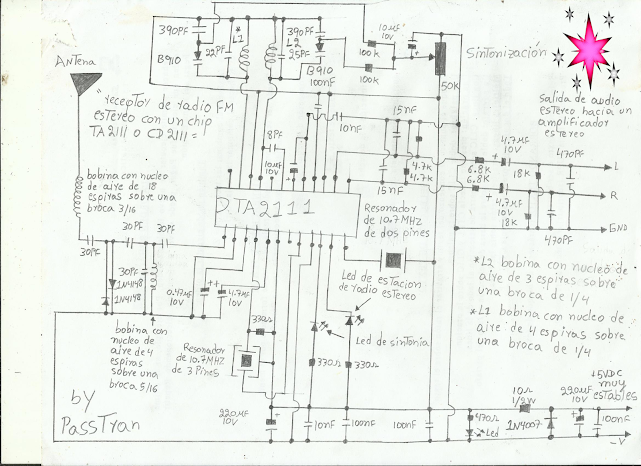 390PF
*
L1
390PF
L2
10MF
10V
22PF
25PF
B910
B910
100nF
100k
100k
50K
Sintonización
ANtena
"receptor de radio FM
estereo con un chip
TA2111 o CD2111=
salida de audio
estereo hacia un
amplificador
estereo
15nF
10nF
8PF
10MF
10V
4.7k
4.7k
15nF
4.7MF
10V
470PF
6.8K
6.8K
18K
L
4.7MF
10V
18K
R
470PF
GND
bobina con nucleo
de aire de 18
espiras sobre una
broca 3/16
D.TA2111
Resonador
de 10.7MHZ
de dos pines
30PF
30PF
30PF
30PF
1N4148
1N4148
0.47MF
10V
4.7MF
10V
Led de estacion
de radio estereo
Led de sintonia
*L2 bobina con nucleo de
aire de 3 espiras sobre
una broca de 1/4
*L1 bobina con nucleo de
aire de 4 espiras sobre
una broca de 1/4
bobina con
nucleo de
aire de 4
espiras
sobre una
broca 5/16
330Ω
Resonador
de 10.7MHZ
de 3 Pines
330Ω
330Ω
by
PassTran
220MF
10V
10nF
100nF
100nF
470Ω
Led
10Ω
1/2W
1N4007
220MF
10V
100nF
+5VDC
muy
estables
-V